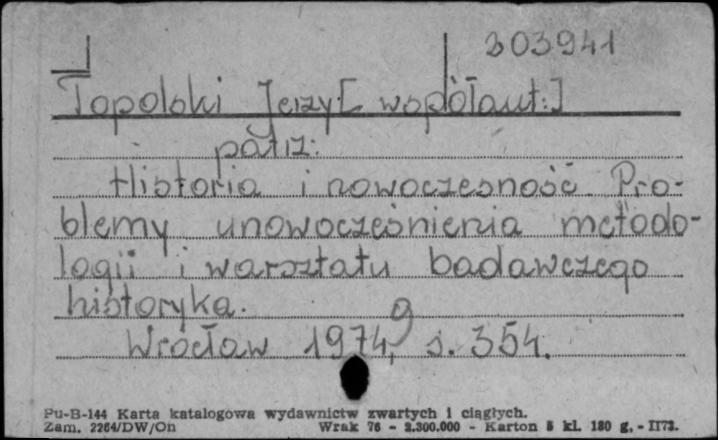 303941
Topolski Jerzy [współaut.:]
patrz:
Historia i nowoczesność. Pro-
blemy unowocześnienia metodo-
logii i warsztatu badawczego
historyka.
Wrocław 1974, s. 354.
Pu-B-144 Karta katalogowa wydawnictw zwartych i ciągłych.
Zam. 2264/DW/On Wrak 76 - 2.300.000 - Karton 5 kl. 180 g. - II73.